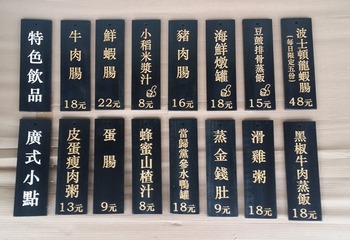 特色飲品
牛肉腸
18元
鮮蝦腸
22元
小稻米漿汁
8元
豬肉腸
16元
海鮮燉罐
18元
豆豉排骨蒸飯
15元
波士頓龍蝦腸
(每日限定五份)
48元
廣式小點
皮蛋瘦肉粥
13元
蛋腸
9元
蜂蜜山楂汁
8元
當歸黨參水鴨罐
18元
蒸金錢肚
9元
滑雞粥
18元
黑椒牛肉蒸飯
18元